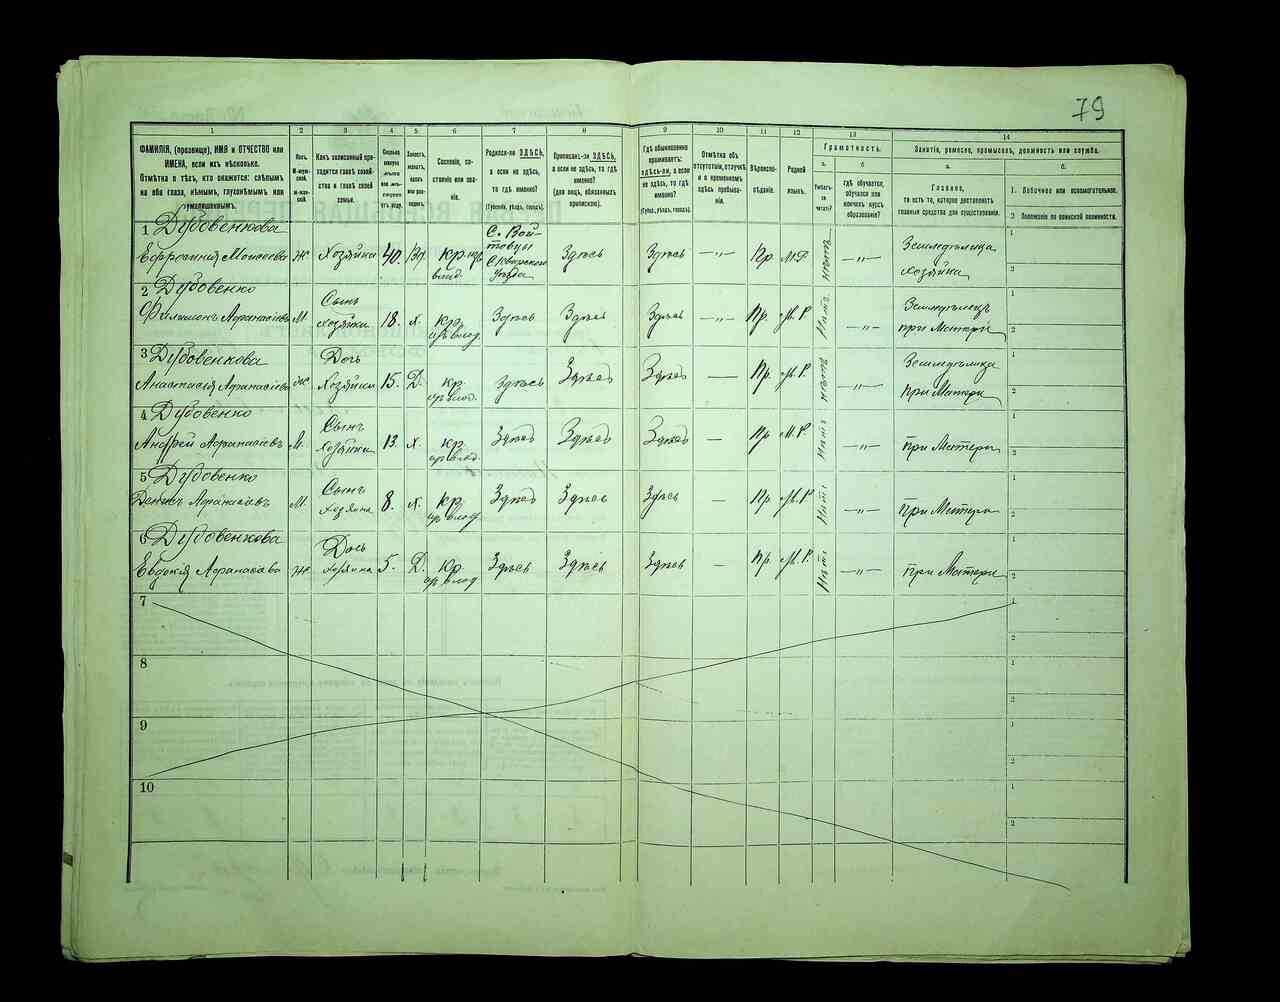 79
1 2 3 4 5 6 7 8 9 10 11 12 13 14
ФАМИЛІЯ, (прозвище), ИМЯ и ОТЧЕСТВО или
ИМЕНА, если ихъ нѣсколько.
Отмѣтка о тѣхъ, кто окажется: слѣпымъ
на оба глаза, нѣмымъ, глухонѣмымъ или
умалишеннымъ.
Полъ.
М-муж-
ской.
Ж-жен-
ской.
Какъ записанный при-
ходится главѣ хозяй-
ства и главѣ своей
семьи.
Сколько
минуло
лѣтъ
Холостъ,
женатъ,
вдовъ
или раз-
веденъ.
Сословіе, со-
стояніе или зва-
ніе.
Родился-ли ЗДѢСЬ,
а если не здѣсь,
то гдѣ именно?
(Губернія, уѣздъ, городъ).
Приписанъ-ли ЗДѢСЬ,
а если не здѣсь, то гдѣ
именно?
(для лицъ, обязанныхъ
припискою).
Гдѣ обыкновенно
проживаетъ:
ЗДѢСЬ-ли, а если
не здѣсь, то гдѣ
именно?
(Губер., уѣздъ, городъ).
Отмѣтка объ
отсутствіи, отлучкѣ
и о временномъ
здѣсь пребыва-
ніи.
Вѣроиспо-
вѣданіе.
Родной
языкъ.
Грамотность.
а. б.
Умѣетъ-
ли
читать?
гдѣ обучается,
обучался или
кончилъ курсъ
образованія?
Занятіе, ремесло, промыселъ, должность или служба.
а. б.
Главное,
то есть то, которое доставляетъ
главныя средства для существованія.
1. Побочное или вспомогательное.
2 Положеніе по воинской повинности.
1 Дубовенкова
Ефросинія Моисеева Ж Хозяйка 40. Вд. кр. С. Вой-товцы уѣзда Здѣсь Здѣсь —„— Пр М.Р. нѣтъ —„— Земледѣлица хозяйка 1 2
2 Дубовенко
Филимонъ Афанасіевъ М Сынъ хозяйки 18. х. кр. Здѣсь Здѣсь Здѣсь —„— Пр. М. Р. Нѣтъ —„— Земледѣлецъ при Матери 1 2
3 Дубовенкова
Анастасія Афанасіева Ж Дочь Хозяйки 15. Д. кр. Здѣсь Здѣсь Здѣсь — Пр. М. Р. нѣтъ —„— Земледѣлица при Матери 1 2
4 Дубовенко
Андрей Афанасіевъ М. Сынъ хозяйки 13. х. кр. Здѣсь Здѣсь Здѣсь — Пр М. Р. Нѣтъ —„— При Матери 1 2
5 Дубовенко
Денисъ Афанасіевъ М. Сынъ Хозяина 8. х. Кр. Здѣсь Здѣсь Здѣсь — Пр. М. Р. Нѣтъ —„— При Матери 1 2
6 Дубовенкова
Евдокія Афанасіева Ж. Дочь Хозяина 5. Д. Кр. Здѣсь Здѣсь Здѣсь — Пр. М. Р. Нѣтъ —„— При Матери 1 2
7 1 2
8 1 2
9 1 2
10 1 2